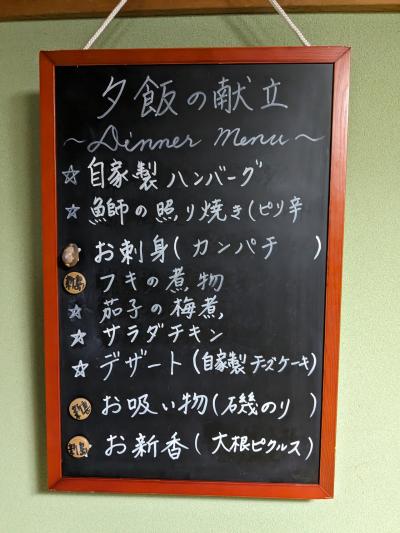 夕飯の献立
~Dinner Menu~
☆自家製ハンバーグ
☆魚師の照り焼き(ピリ辛
お刺身(カンパチ)
フキの煮物
☆茄子の梅煮
☆サラダチキン
☆デザート(自家製チーズケーキ)
お吸い物(磯のり)
お新香(大根ピクルス)